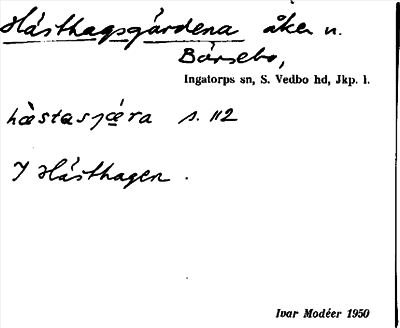 Hästhagsgärdena åker n.
Bårsebo,
Ingatorps sn, S. Vedbo hd, Jkp. l.
hàstasjǽra s. 112
I Hästhagen.
Ivar Modéer 1950